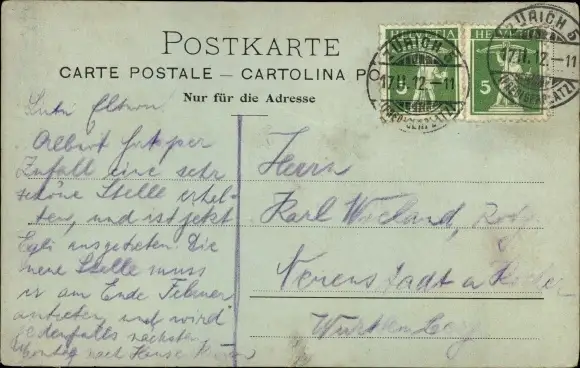 POSTKARTE
CARTE POSTALE — CARTOLINA PO
Nur für die Adresse
HELVETIA
HELVETIA
5
5
ZÜRICH 5
17.II.12.-11
ZÜRICH 5
17.II.12.-11
Eltern
Albert hat per
Zufall eine sehr
schöne Stelle erhal-
ten, und ist jetzt
ausgetreten. Die
neue Stelle muss
er am Ende Februar
antreten und wird
jedenfalls nächsten
Montag nach Hause
Herrn
Karl Wieland,
Neuenstadt a Kocher
Württemberg